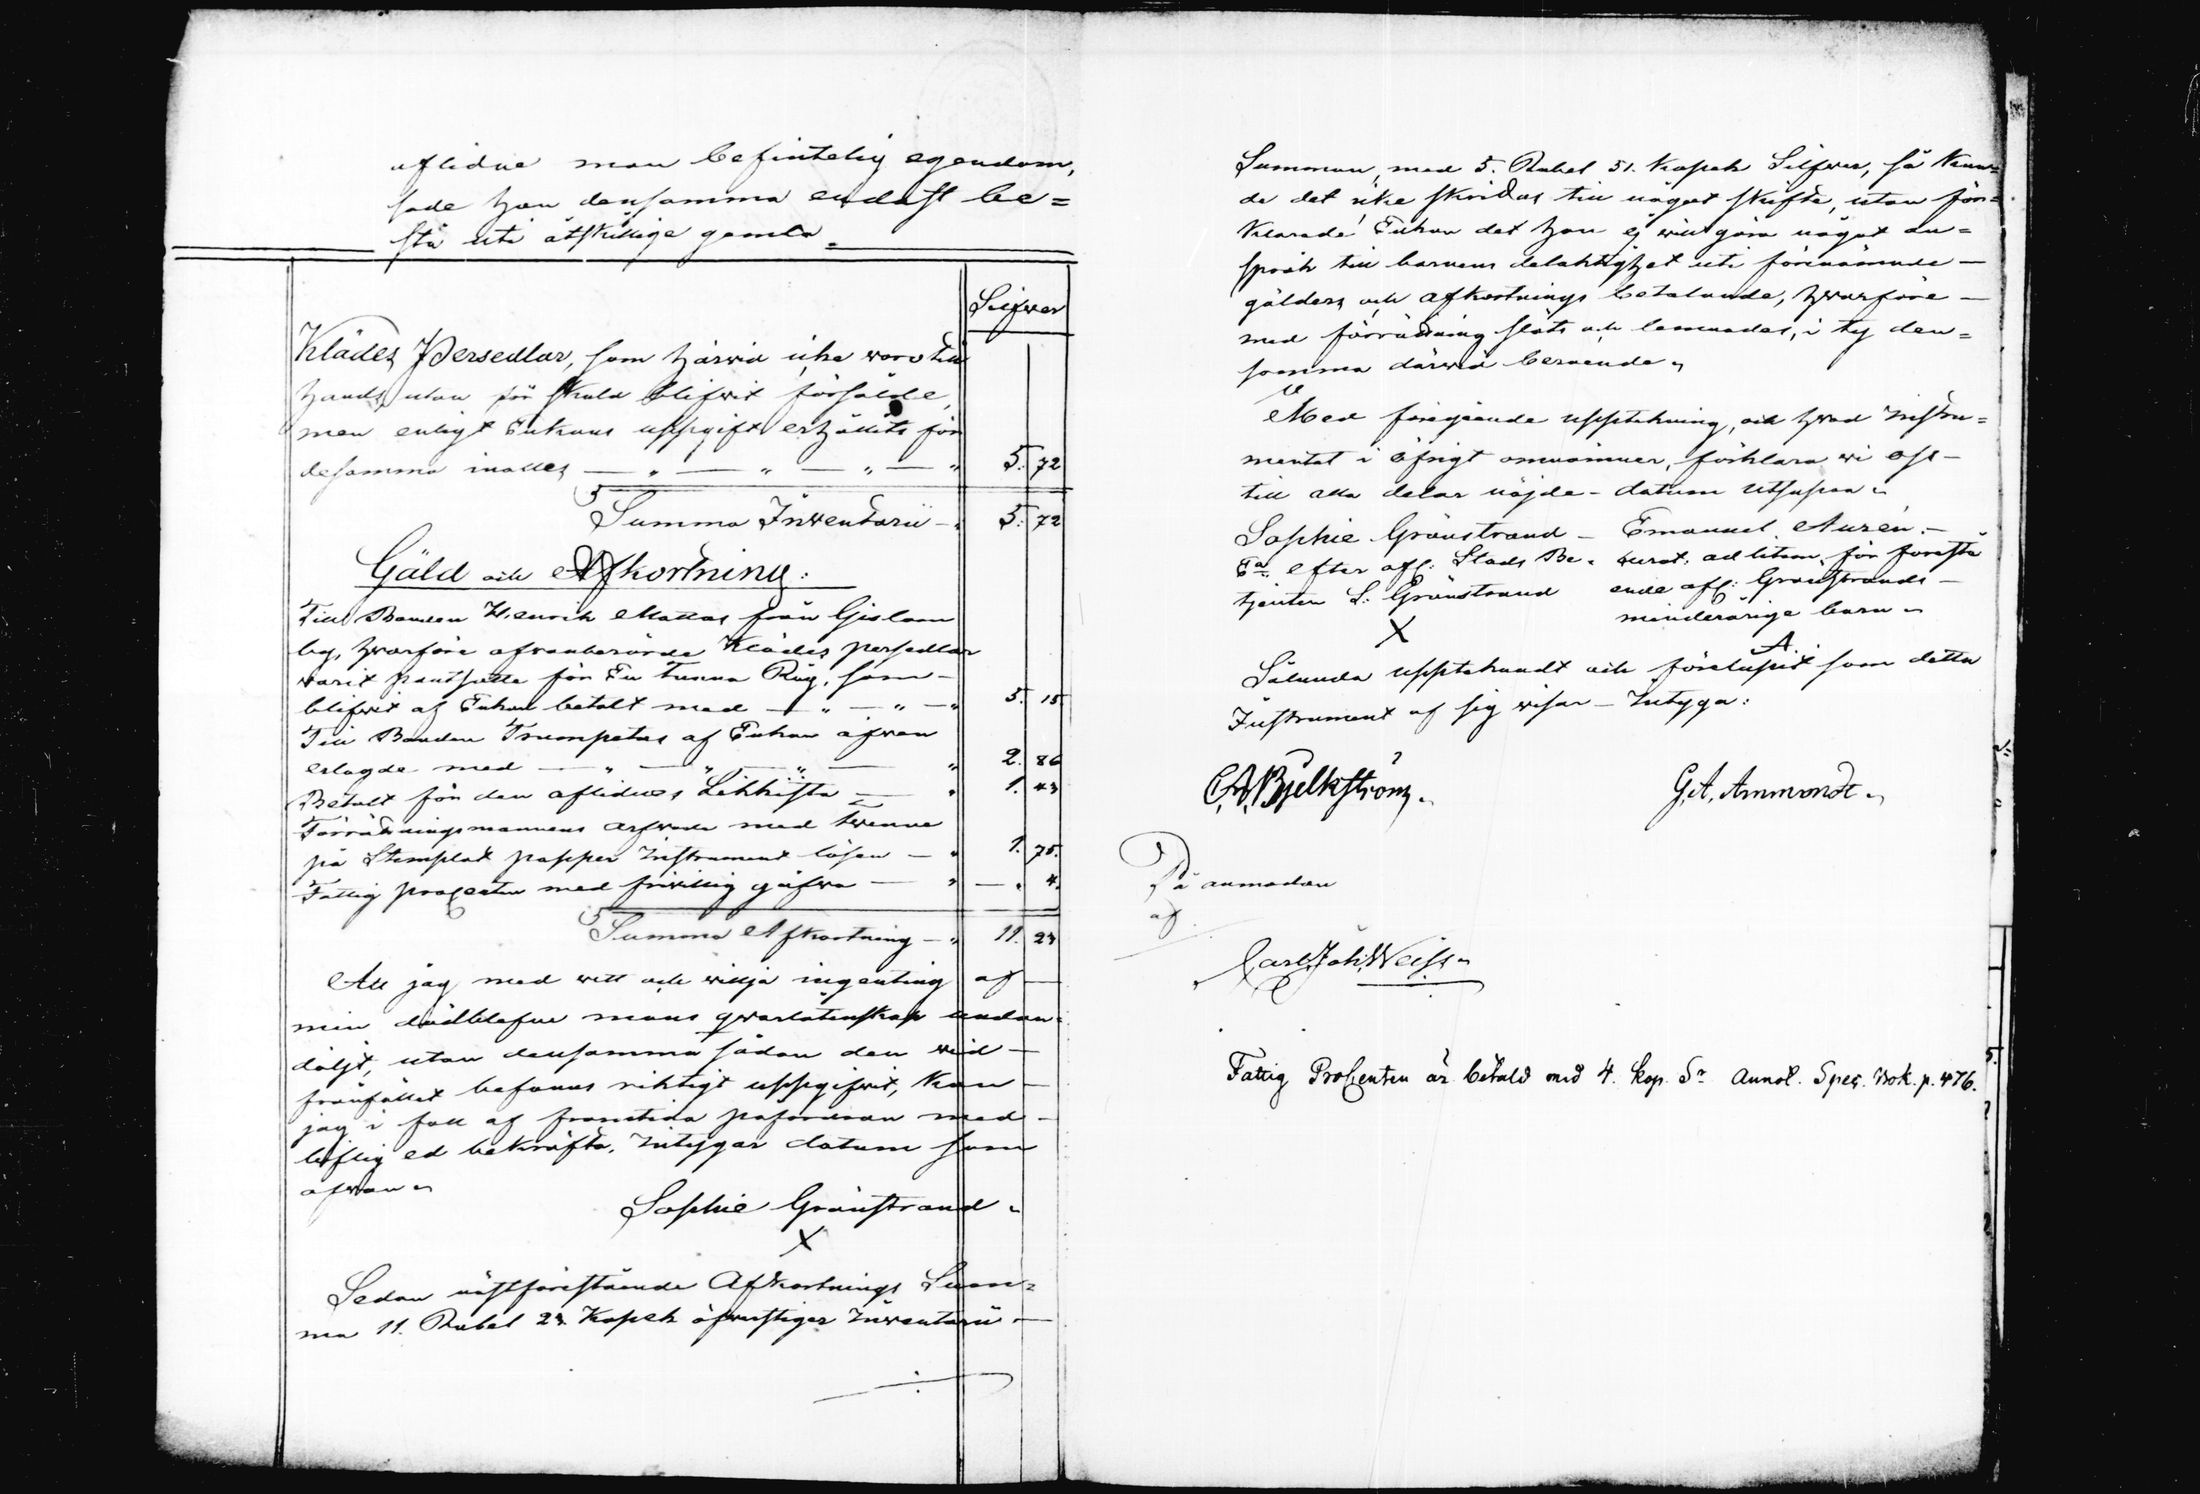 aflidne man befintelig egendom,
sade hon densamma endast be=
stå uti åtskillige gamla
Silfver
Klädes Persedlar, som härvid icke voro till
hands, utan för skuld blifvit försålde,
men enligt Enkans uppgift erhållits för
desamma inalles — " — " — " — " 5. 72
Summa Inventarii — " 5. 72
Gäld och Afkortning:
Till Bonden Henrik Mattas från Gislom
by, hvarföre ofvanberörde Klädes persedlar
varit pantsatte för En Tunna Råg, som —
blifvit af Enkan betalt med — " — " — " 5. 15
Till Bonden Trumpetas af Enkan äfven
erlagde med — " — " — " — " 2. 86
Betalt för den aflidnes Likkista — " 1. 43
Förrättningsmannens arfvode med tvenne
på Stemplat papper Instrument lösen — " 1. 75.
Fattig procenten med frivillig gåfva — " — . 4.
Summa Afkortning — " 11. 23
Att jag med vett och vilja ingenting af —
min dödblefne mans qvarlåtenskap undan=
döljt, utan densamma sådan den vid —
frånfället befanns riktigt uppgifvit, kan —
jag i fall af framtida påfordran med —
liflig ed bekräfta. Intygar datum som
ofvan
Sophie Gränstrand
X
Sedan nästföreståënde Afkortnings Sum=
ma 11. Rubel 23 Kopek öfverstiger Inventarii —
Summan, med 5. Rubel 51. Kopek Silfver, så kun=
de det icke skridas till något skifte, utan för=
klarade Enkan det hon ej vill göra något an=
språk till barnens delaktighet uti förenämnde —
gälders och afkortnings betalande, hvarföre —
med förrättning slöts och lemnades, i ty den=
samma därvid beroende
Med föregående uppteckning, och hvad Instru=
mentet i öfrigt omnämner, förklara vi oss —
till alla delar nöjde — datum utsupra
Sophie Gränstrand — Emanuel Aurén. —
Ea efter afl: Stads Be= curat: ad litem för förestå
tjenten L: Gränstrand ende afl: Gränstrands —
X minderårige barn
Sålunda upptecknadt och förelupit som detta
Instrument af sig visar — Intyga:
C. A. Bjelkström G. A. Ammondt
På anmodan
af
Carl Joh. Weiss
Fattig Procenten är betald med 4. kop. Sr Annot. Spec. Bok. p. 476.